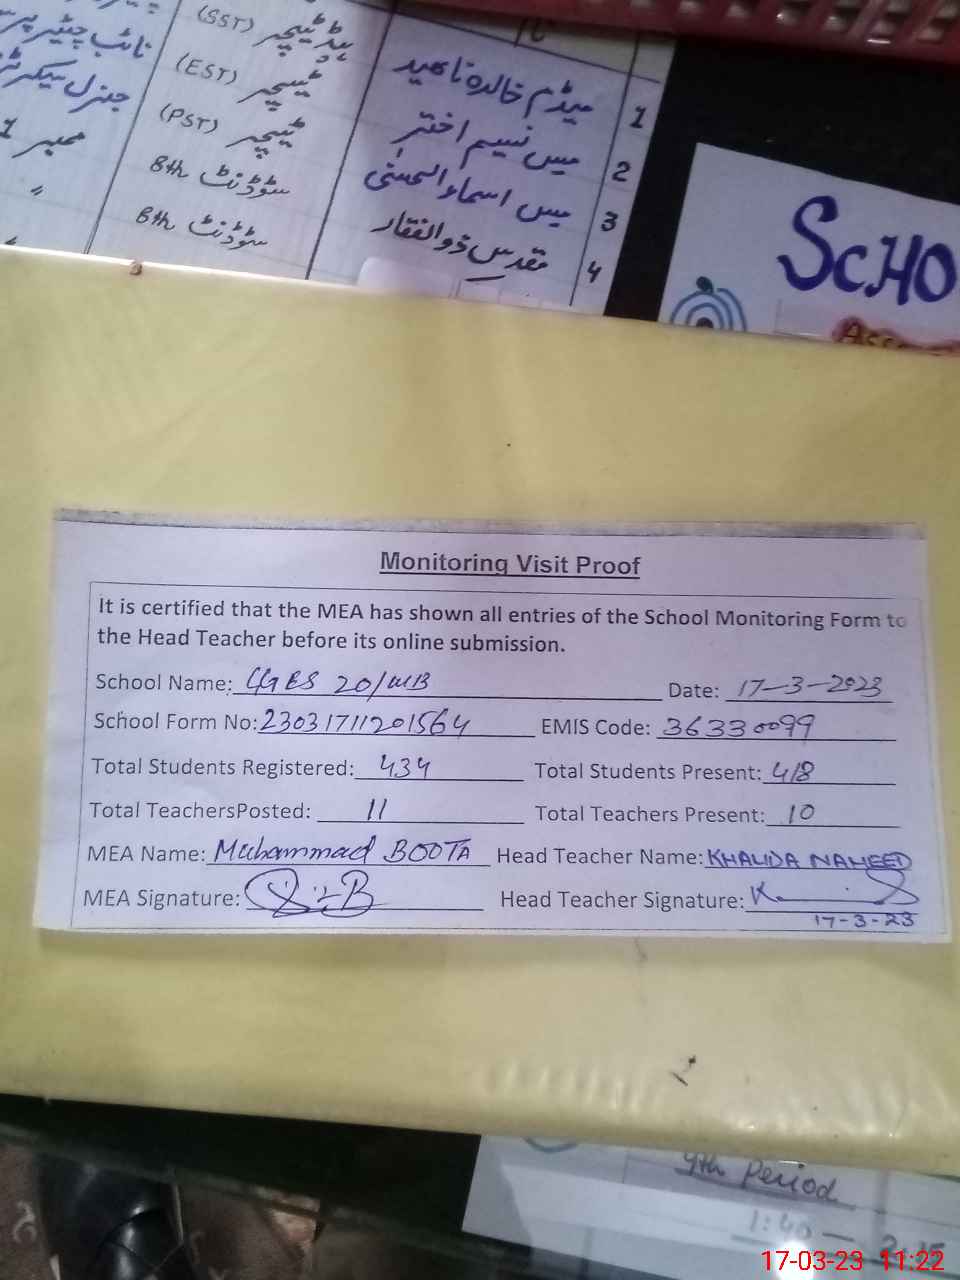 (SST) ہیڈ ٹیچر
(EST) ٹیچر
(PST) ٹیچر
8th سٹوڈنٹ
8th سٹوڈنٹ
نائب
جنرل سیکرٹری
ممبر 1
〃
1 میڈم خالدہ ناھید
2 مس نسیم اختر
3 مس اسماء الحسنٰی
4 مقدس ذوالفقار
SCHO
Monitoring Visit Proof
It is certified that the MEA has shown all entries of the School Monitoring Form to
the Head Teacher before its online submission.
School Name: GGES 20/MB Date: 17-3-2023
School Form No: 23031711201564 EMIS Code: 36330099
Total Students Registered: 434 Total Students Present: 418
Total TeachersPosted: 11 Total Teachers Present: 10
MEA Name: Muhammad BOOTA Head Teacher Name: KHALIDA NAHEED
MEA Signature: Head Teacher Signature:
17-3-23
9th Period
1:40 — 2:15
17-03-23 11:22